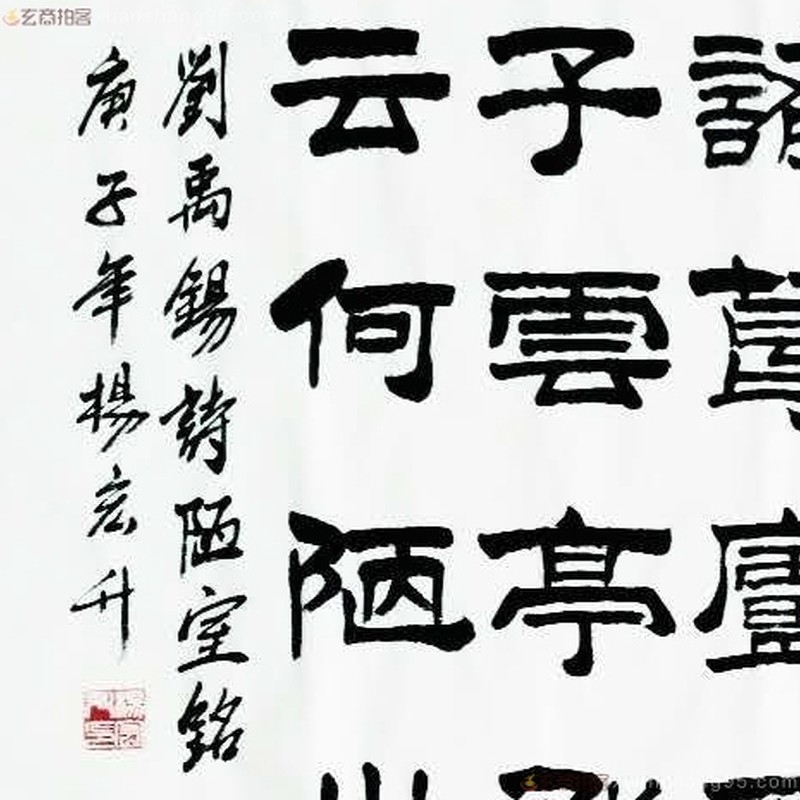 諸葛廬
子雲亭
云何陋
劉禹錫詩陋室銘
庚子年楊宏升
玄商拍客